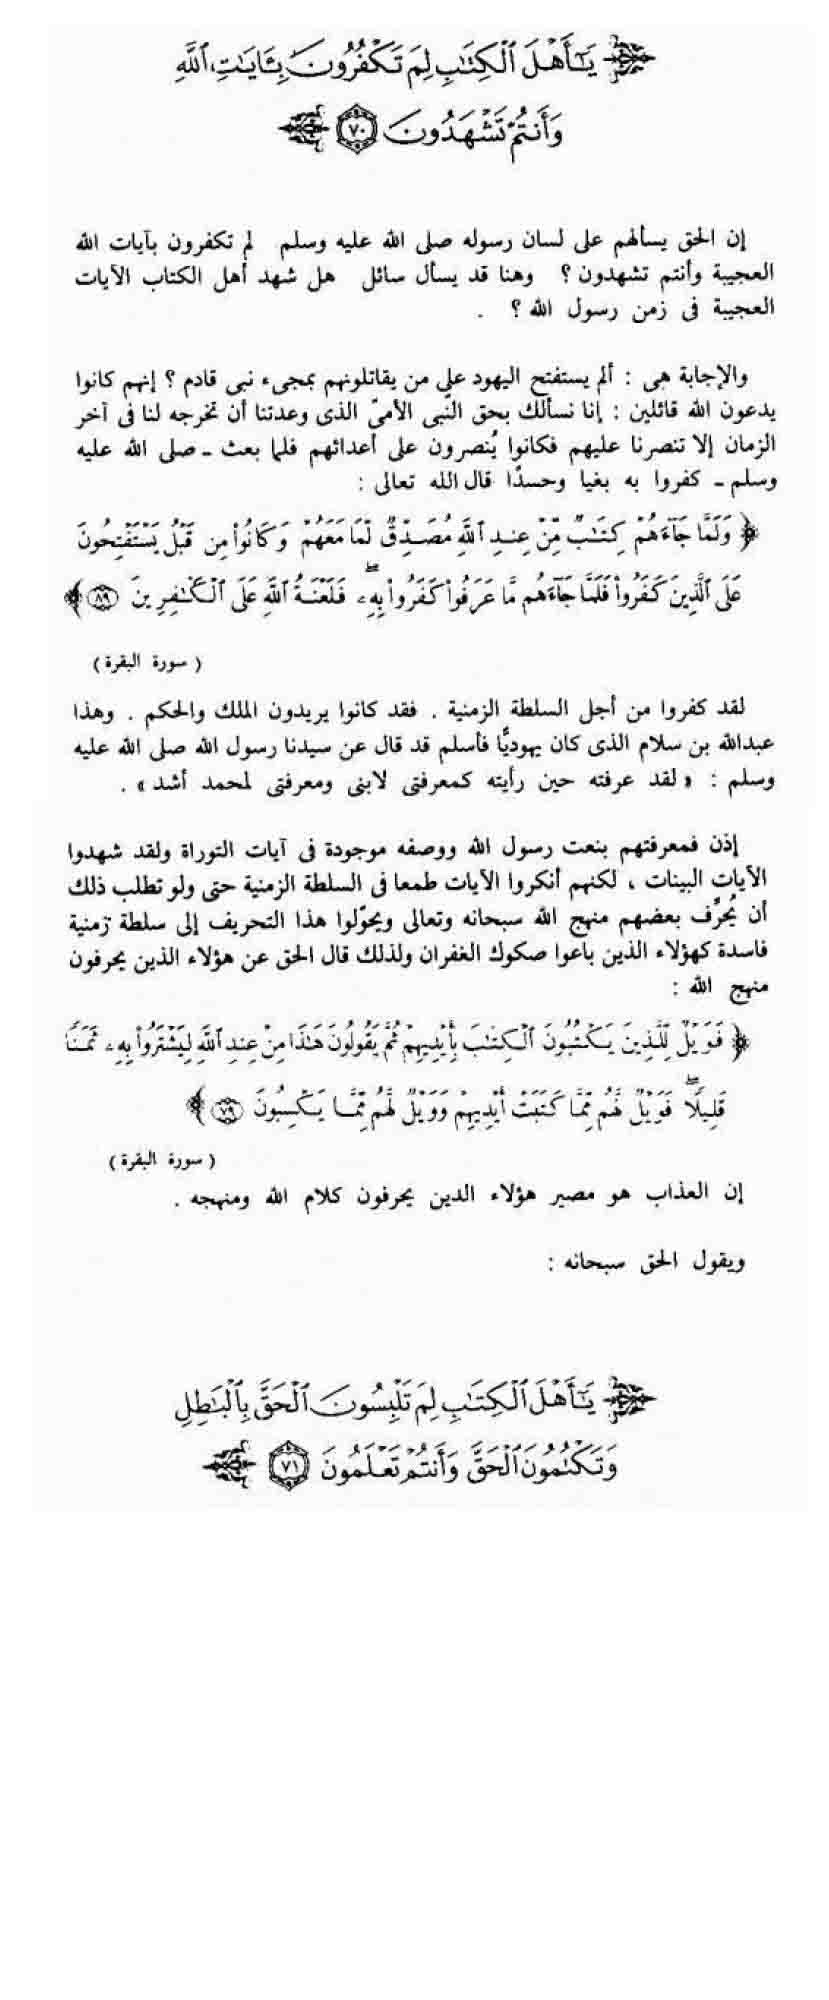 يَـٰٓأَهْلَ ٱلْكِتَـٰبِ لِمَ تَكْفُرُونَ بِـَٔايَـٰتِ ٱللَّهِ
وَأَنتُمْ تَشْهَدُونَ ٧٠
إن الحق يسألهم على لسان رسوله صلى الله عليه وسلم لم تكفرون بآيات الله
العجيبة وأنتم تشهدون ؟ وهنا قد يسأل سائل هل شهد أهل الكتاب الآيات
العجيبة فى زمن رسول الله ؟ .
والإجابة هى : ألم يستفتح اليهود على من يقاتلونهم بمجىء نبى قادم ؟ إنهم كانوا
يدعون الله قائلين : إنا نسألك بحق النبى الأمىّ الذى وعدتنا أن تخرجه لنا فى آخر
الزمان إلا تنصرنا عليهم فكانوا يُنصرون على أعدائهم فلما بعث ـ صلى الله عليه
وسلم ـ كفروا به بغيا وحسدًا قال الله تعالى :
﴿ وَلَمَّا جَآءَهُمْ كِتَـٰبٌ مِّنْ عِندِ ٱللَّهِ مُصَدِّقٌ لِّمَا مَعَهُمْ وَكَانُوا۟ مِن قَبْلُ يَسْتَفْتِحُونَ
عَلَى ٱلَّذِينَ كَفَرُوا۟ فَلَمَّا جَآءَهُم مَّا عَرَفُوا۟ كَفَرُوا۟ بِهِۦ ۚ فَلَعْنَةُ ٱللَّهِ عَلَى ٱلْكَـٰفِرِينَ ٨٩ ﴾
( سورة البقرة )
لقد كفروا من أجل السلطة الزمنية . فقد كانوا يريدون الملك والحكم . وهذا
عبدالله بن سلام الذى كان يهوديًّا فأسلم قد قال عن سيدنا رسول الله صلى الله عليه
وسلم : « لقد عرفته حين رأيته كمعرفتى لابنى ومعرفتى لمحمد أشد » .
إذن فمعرفتهم بنعت رسول الله ووصفه موجودة فى آيات التوراة ولقد شهدوا
الآيات البينات ، لكنهم أنكروا الآيات طمعا فى السلطة الزمنية حتى ولو تطلب ذلك
أن يُحرِّف بعضهم منهج الله سبحانه وتعالى ويحوّلوا هذا التحريف إلى سلطة زمنية
فاسدة كهؤلاء الذين باعوا صكوك الغفران ولذلك قال الحق عن هؤلاء الذين يحرفون
منهج الله :
﴿ فَوَيْلٌ لِّلَّذِينَ يَكْتُبُونَ ٱلْكِتَـٰبَ بِأَيْدِيهِمْ ثُمَّ يَقُولُونَ هَـٰذَا مِنْ عِندِ ٱللَّهِ لِيَشْتَرُوا۟ بِهِۦ ثَمَنًا
قَلِيلًا ۖ فَوَيْلٌ لَّهُم مِّمَّا كَتَبَتْ أَيْدِيهِمْ وَوَيْلٌ لَّهُم مِّمَّا يَكْسِبُونَ ٧٩ ﴾
( سورة البقرة )
إن العذاب هو مصير هؤلاء الدين يحرفون كلام الله ومنهجه .
ويقول الحق سبحانه :
يَـٰٓأَهْلَ ٱلْكِتَـٰبِ لِمَ تَلْبِسُونَ ٱلْحَقَّ بِٱلْبَـٰطِلِ
وَتَكْتُمُونَ ٱلْحَقَّ وَأَنتُمْ تَعْلَمُونَ ٧١